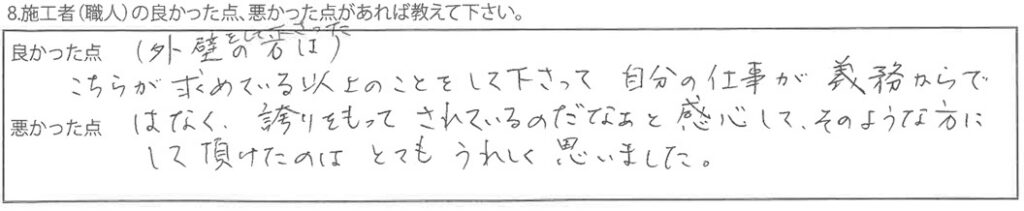 8.施工者(職人)の良かった点、悪かった点があれば教えて下さい。
良かった点 (外壁をして下さったの方は)
こちらが求めている以上のことをして下さって 自分の仕事が 義務からで
悪かった点 はなく、誇りをもって されているのだなぁと 感心して、そのような方に
して頂けたのは とても うれしく 思いました。